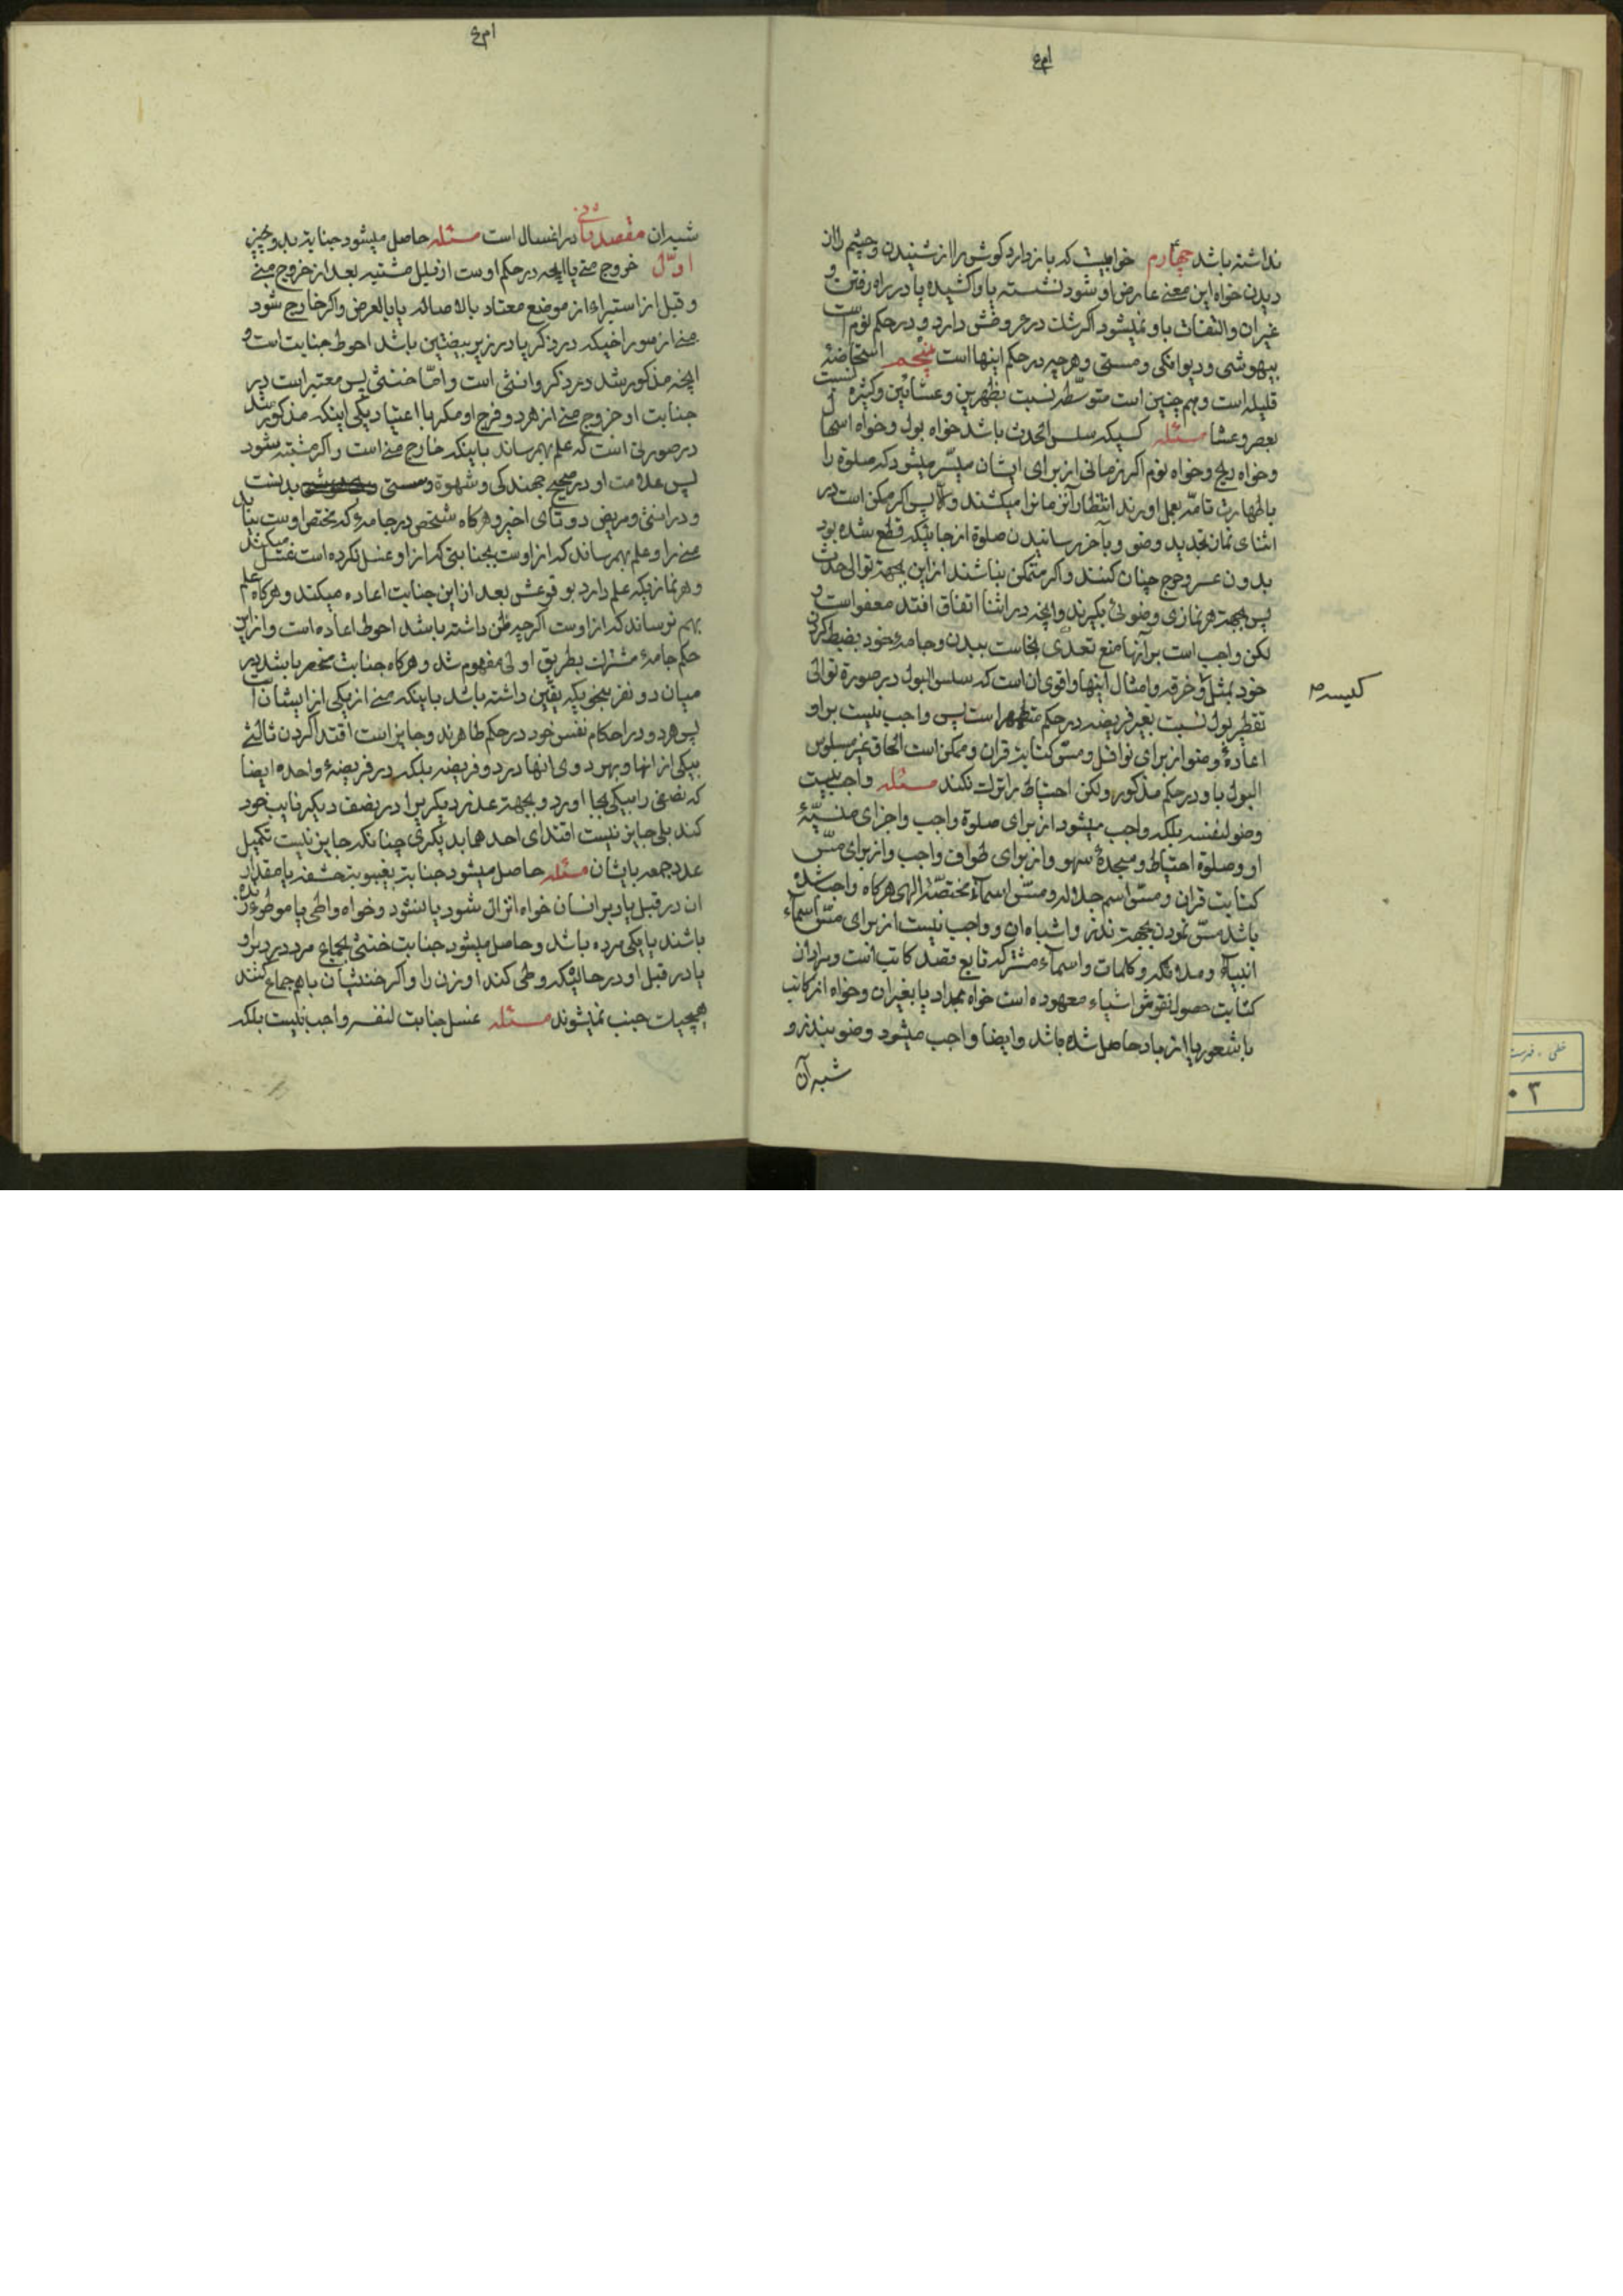 نداشته باشد چهارم خوابیست که باز دارد کوش را از شنیدن و چشم را از
دیدن خواه این معنی عارض او شود نشسته یا واکشیده یا در راه رفتن و
غیر ان والتفات باو نمیشود اکر شک در عروضش دارد و در حکم نوم است
بیهوشی و دیوانکی و مستی و هر چه در حکم اینها است پنجم استحاضهٔ
قلیله است و هم چنین است متوسطه نسبت بظهرین و عشائین و کثیره نسبت
بعصر و عشا مسئله کسیکه سلس الحدث باشد خواه بول و خواه اسهال
و خواه ریح و خواه نوم اکر زمانی از برای ایشان میسّر میشود که صلوة را
با طهارت تامّه بعمل اورند انتظار آنزمانرا میکشند والا پس اکر ممکن است در
اثنای نماز تجدید وضو و بآخر رسانیدن صلوة از جائیکه قطع شده بود
بدون عسر و حرج چنان کنند واکر متمکن نباشند از این بجهة توالی حدث
پس بجهة هر نمازی وضوئی بکیرند وانچه در اثنا اتفاق افتد معفو است و
لکن واجب است بر آنها منع تعدّی نجاست ببدن و جامهٔ خود بضبط کردن
خود بمثل و خرقه و امثال اینها و اقوی ان است که سلس البول در صورة توالی
کلیسه
تقطیر بول نسبت بغیر فریضه در حکم متطهر است پس واجب نیست بر او
اعادهٔ وضو از برای نوافل و مسّ کتابة قران و ممکن است الحاق غیر مسلوس
البول باو در حکم مذکور ولکن احتیاط را ترک نکند مسئله واجب نیست
وضو لنفسه بلکه واجب میشود از برای صلوة واجب و اجزای منسیّهٔ
او و صلوة احتیاط و سجدهٔ سهو و از برای طواف واجب و از برای مسّ
کتابت قران و مسّ اسم جلاله و مسّ اسمآء مختصّهٔ الهی هرکاه واجب شده
باشد مسّ نمودن بجهة نذر و اشباه ان و واجب نیست از برای مسّ اسمآء
انبیآء و ملائکه و کلمات و اسمآء مشترکه تابع قصد کاتب است و مراد از
کتابت حصول نقوش اشیاء معهوده است خواه بمداد یا بغیر ان و خواه از کاتب
با شعور یا از باد حاصل شده باشد و ایضا واجب میشود وضو بنذر و
شبه آن
شبه ان مقصد ثانی در اغسال است مسئله حاصل میشود جنابة بدو چیز
اوّل خروج منی یا انچه در حکم اوست از بلل مشتبه بعد از خروج منی
و قبل از استبراء از موضع معتاد بالاصاله یا بالعرض واکر خارج شود
منی از سوراخیکه در ذکر یا در زیر بیضتین باشد احوط جنابت است و
انچه مذکور شد در ذکر و انثی است و امّا خنثی پس معتبر است در
جنابت او خروج منی از هر دو فرج او مکر با اعتیاد یکی اینکه مذکور شد
در صورتی است که علم بهم رساند باینکه خارج منی است و اکر مشتبه شود
پس علامت او در صحیح جهندکی و شهوة و سستی بدنست
و در انثی و مریض دو تای اخیر و هرکاه شخصی در جامهٔ که مختص اوست بیابد
منی را و علم بهم رساند که از اوست بجنابتی که از او غسل نکرده است غسل میکند
و هر نمازیکه علم دارد بوقوعش بعد از این جنابت اعاده میکند و هرکاه علم
بهم نرساند که از اوست اکر چه ظن داشته باشد احوط اعاده است و از این
حکم جامهٔ مشترک بطریق اولی مفهوم شد و هرکاه جنابت منحصر باشد در
میان دو نفر بنحویکه یقین داشته باشد باینکه منی از یکی از ایشان است
پس هر دو در احکام نفس خود در حکم طاهرند و جایز است اقتدا کردن ثالثی
بیکی از انها و بهر دوی انها در دو فریضه بلکه در فریضهٔ واحده ایضا
که نصفی را بیکی بجا اورد و بجهة عذر دیکریرا در نصف دیکر نایب خود
کند بلی جایز نیست اقتدای احدهما بدیکری چنانکه جایز نیست تکمیل
عدد جمعه بایشان مسئله حاصل میشود جنابة بغیبوبة حشفه یا مقدار
ان در قبل یا دبر انسان خواه انزال شود یا نشود و خواه واطی یا موطوء زنده
باشند یا یکی مرده باشد و حاصل میشود جنابت خنثی بجماع مرد در دبر او
یا در قبل او در حالتیکه وطی کند او زن را و اکر خنثیان با هم جماع کنند
هیچیک جنب نمیشوند مسئله غسل جنابت لنفسه واجب نیست بلکه